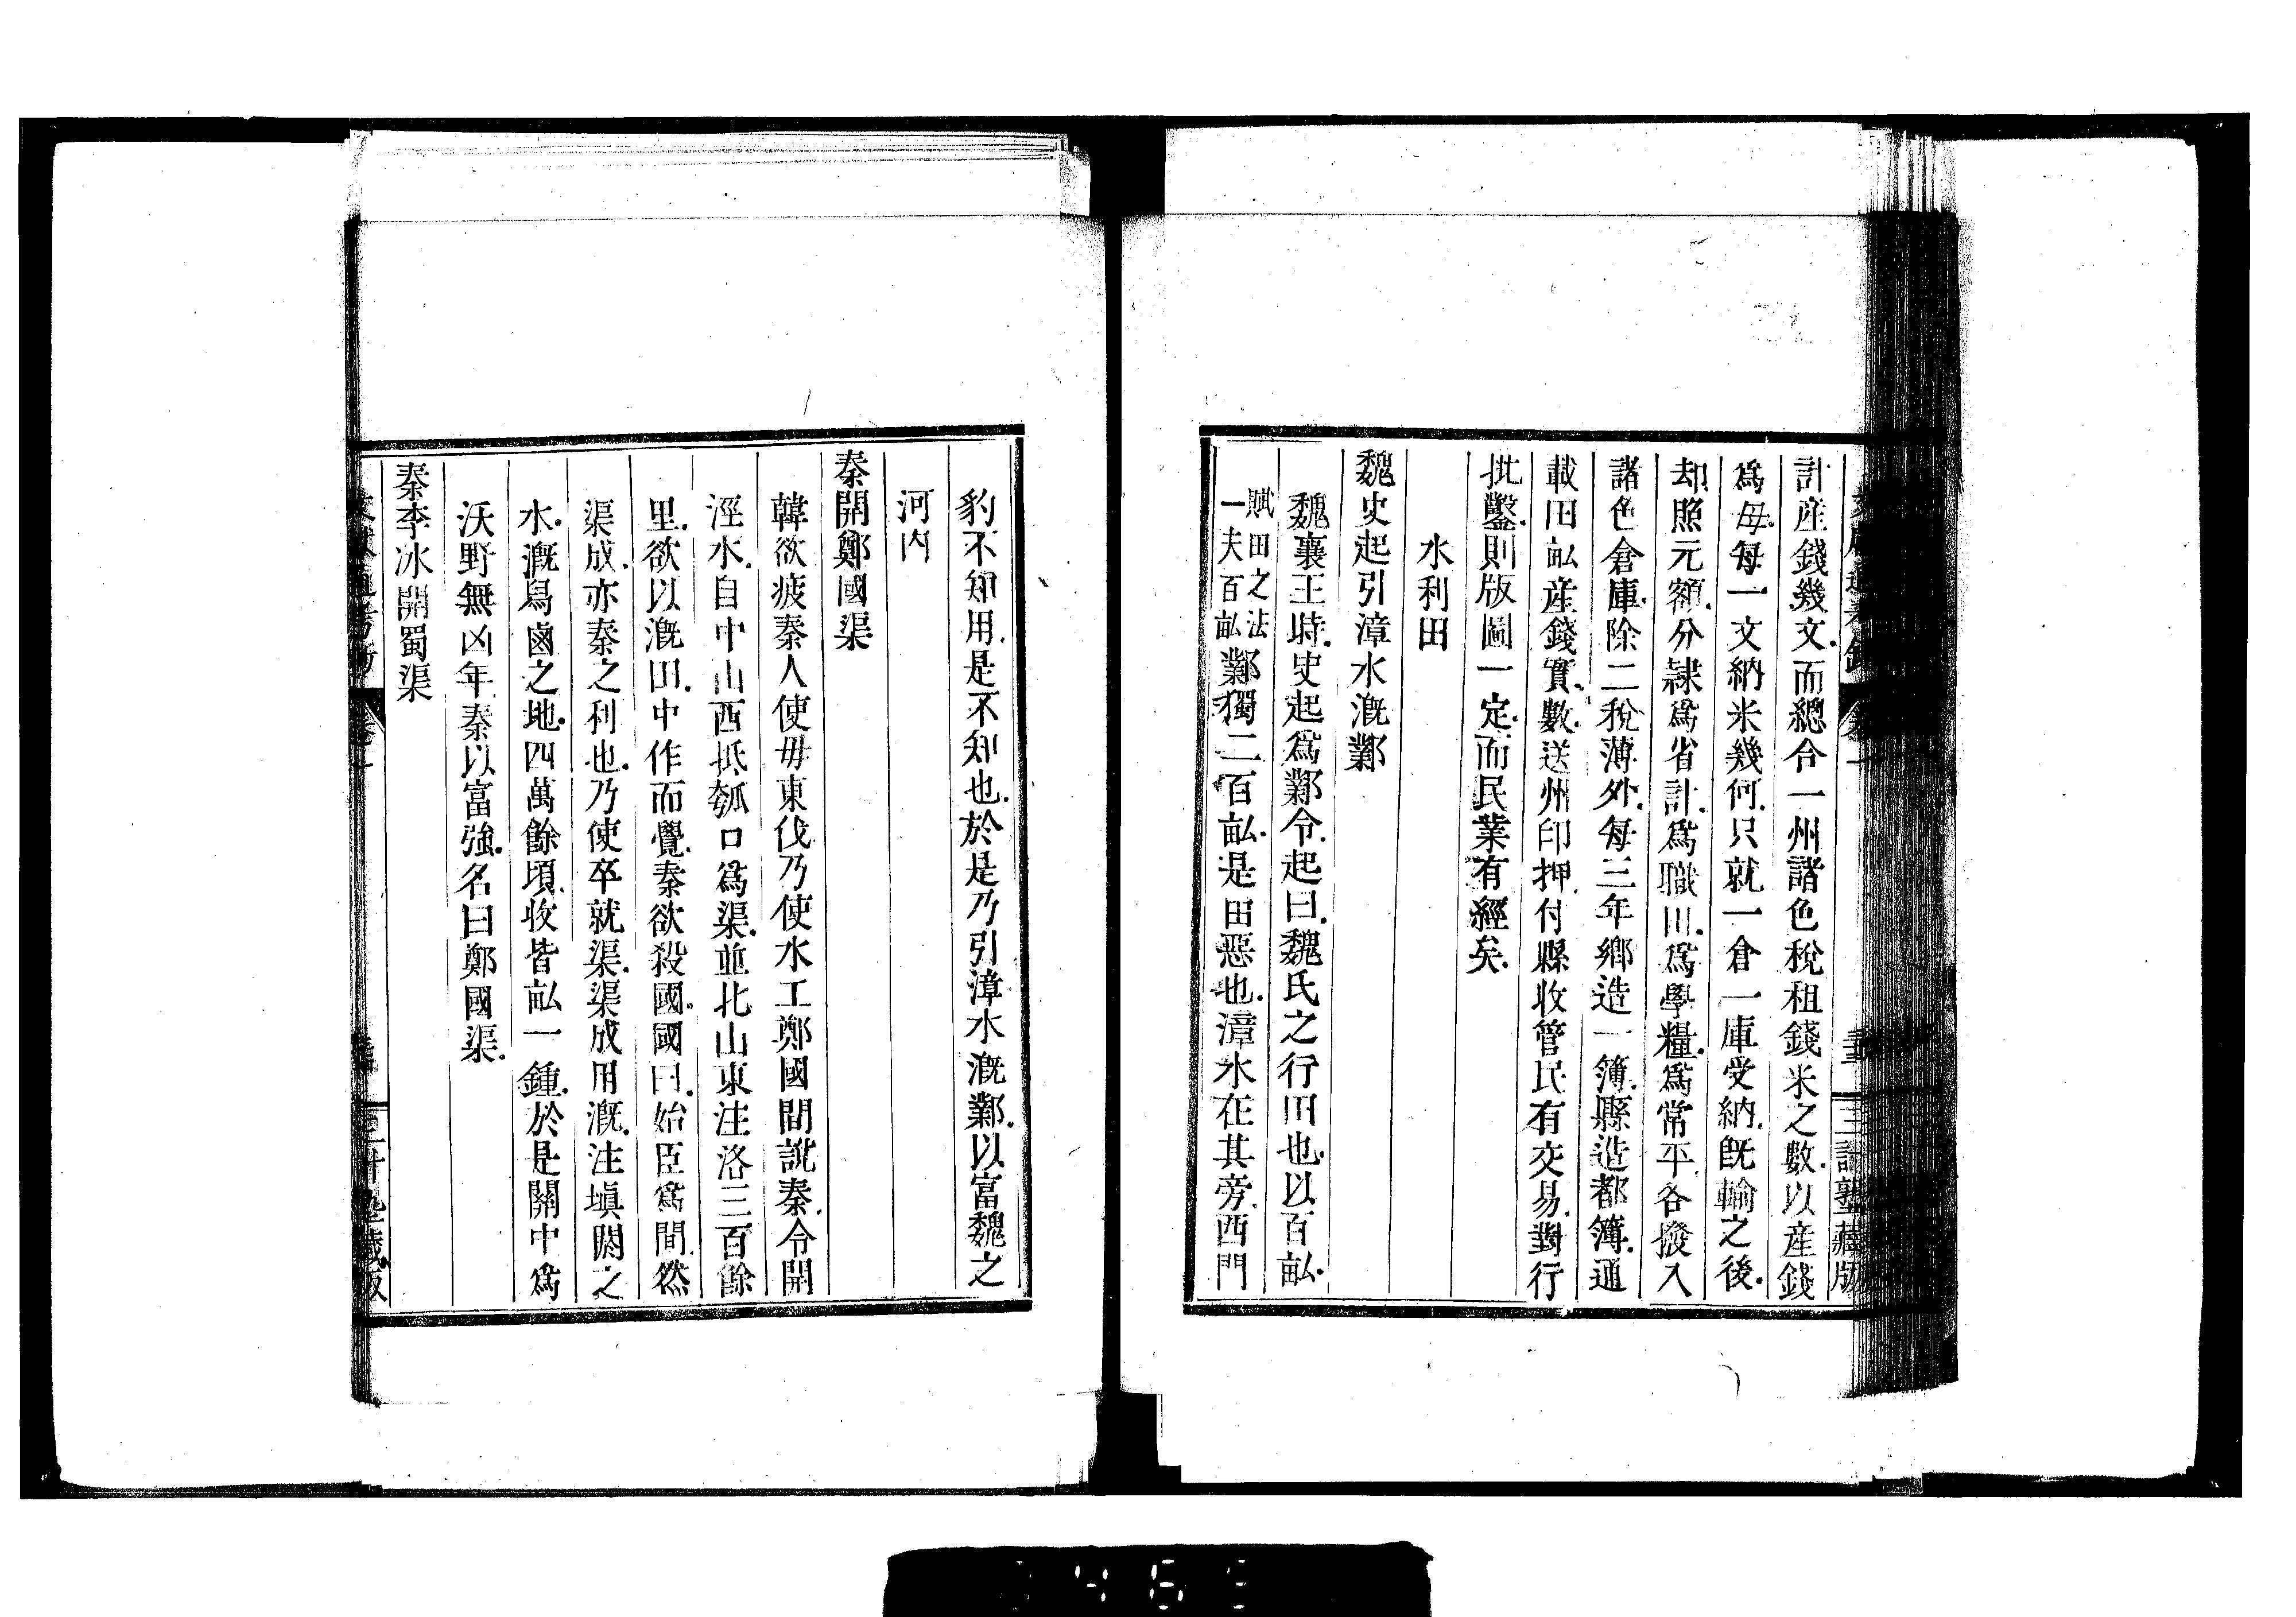 三計塾藏版
計産錢幾文而總合一州諸色稅租錢米之數以産錢
爲母每一文納米幾何只就一倉一庫受納旣輸之後
却照元額分隸爲省計爲職田爲學糧爲常平各撥入
諸色倉庫除二稅薄外每三年鄉造一簿縣造都簿通
載田畝産錢實數送州印押付縣收管民有交易對行
批鑿則版圖一定而民業有經矣
水利田
魏史起引漳水漑鄴
魏襄王時史起爲鄴令起曰魏氏之行田也以百畝
賦田之法
一夫百畝
鄴獨二百畝是田惡也漳水在其旁西門
豹不知用是不知也於是乃引漳水漑鄴以富魏之
河內
秦開鄭國渠
韓欲疲秦人使毋東伐乃使水工鄭國間說秦令開
涇水自中山西抵瓠口爲渠並北山東注洛三百餘
里欲以漑田中作而覺秦欲殺國國曰始臣爲間然
渠成亦秦之利也乃使卒就渠渠成用漑注塡閼之
水漑舃鹵之地四萬餘頃收皆畝一鍾於是關中爲
沃野無凶年秦以富強名曰鄭國渠
秦李冰開蜀渠